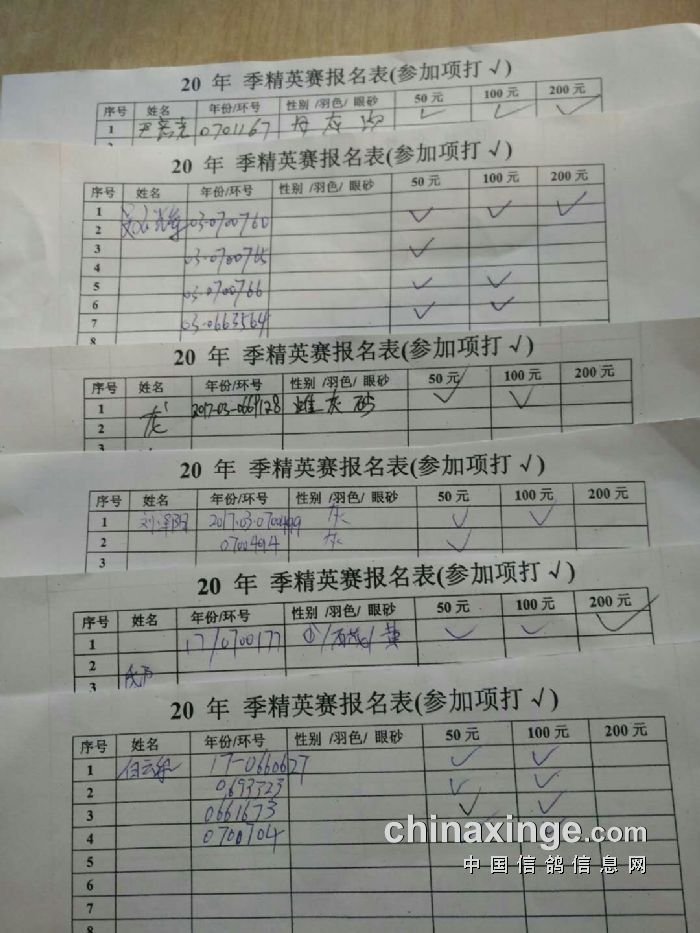 20 年 季精英赛报名表(参加项打 √)
序号 姓名 年份/环号 性别 /羽色/ 眼砂 50 元 100 元 200 元
1 0701167 ✓ ✓ ✓
20 年 季精英赛报名表(参加项打 √)
序号 姓名 年份/环号 性别 /羽色/ 眼砂 50 元 100 元 200 元
1 03-0700760 ✓ ✓ ✓
2
3 03-0700765 ✓
4
5 03-0700766 ✓ ✓
6
7 03-0663564 ✓ ✓
8
20 年 季精英赛报名表(参加项打 √)
序号 姓名 年份/环号 性别 /羽色/ 眼砂 50 元 100 元 200 元
1 2017-03-0669128 雄 灰 砂 ✓ ✓
2
3
20 年 季精英赛报名表(参加项打 √)
序号 姓名 年份/环号 性别 /羽色/ 眼砂 50 元 100 元 200 元
1 刘泽阳 2017-03-0700499 灰 ✓ ✓
2 0700494 灰 ✓
3
20 年 季精英赛报名表(参加项打 √)
序号 姓名 年份/环号 性别 /羽色/ 眼砂 50 元 100 元 200 元
1 17/0700177 黄 ✓ ✓ ✓
2
3
20 年 季精英赛报名表(参加项打 √)
序号 姓名 年份/环号 性别 /羽色/ 眼砂 50 元 100 元 200 元
1 17-0660627 ✓ ✓
2 0693323 ✓ ✓
3 0661673 ✓ ✓
4 0700704
5
6
7
8
chinaxinge.com
中国信鸽信息网